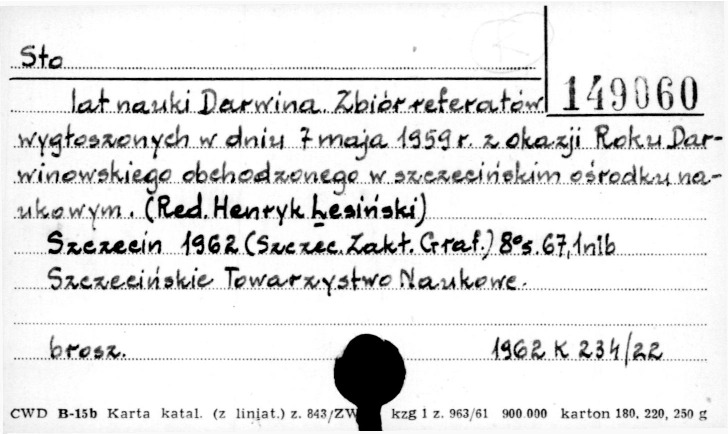 Sto
149060
lat nauki Darwina. Zbiór referatów
wygłoszonych w dniu 7 maja 1959 r. z okazji Roku Dar-
winowskiego obchodzonego w szczecińskim ośrodku na-
ukowym. (Red. Henryk Lesiński)
Szczecin 1962 (Szczec. Zakł. Graf.) 8° s. 67, 1 nlb
Szczecińskie Towarzystwo Naukowe.
brosz. 1962 K 234/22
CWD B-15b Karta katal. (z liniat.) z. 843/ZW kzg 1 z. 963/61 900.000 karton 180, 220, 250 g